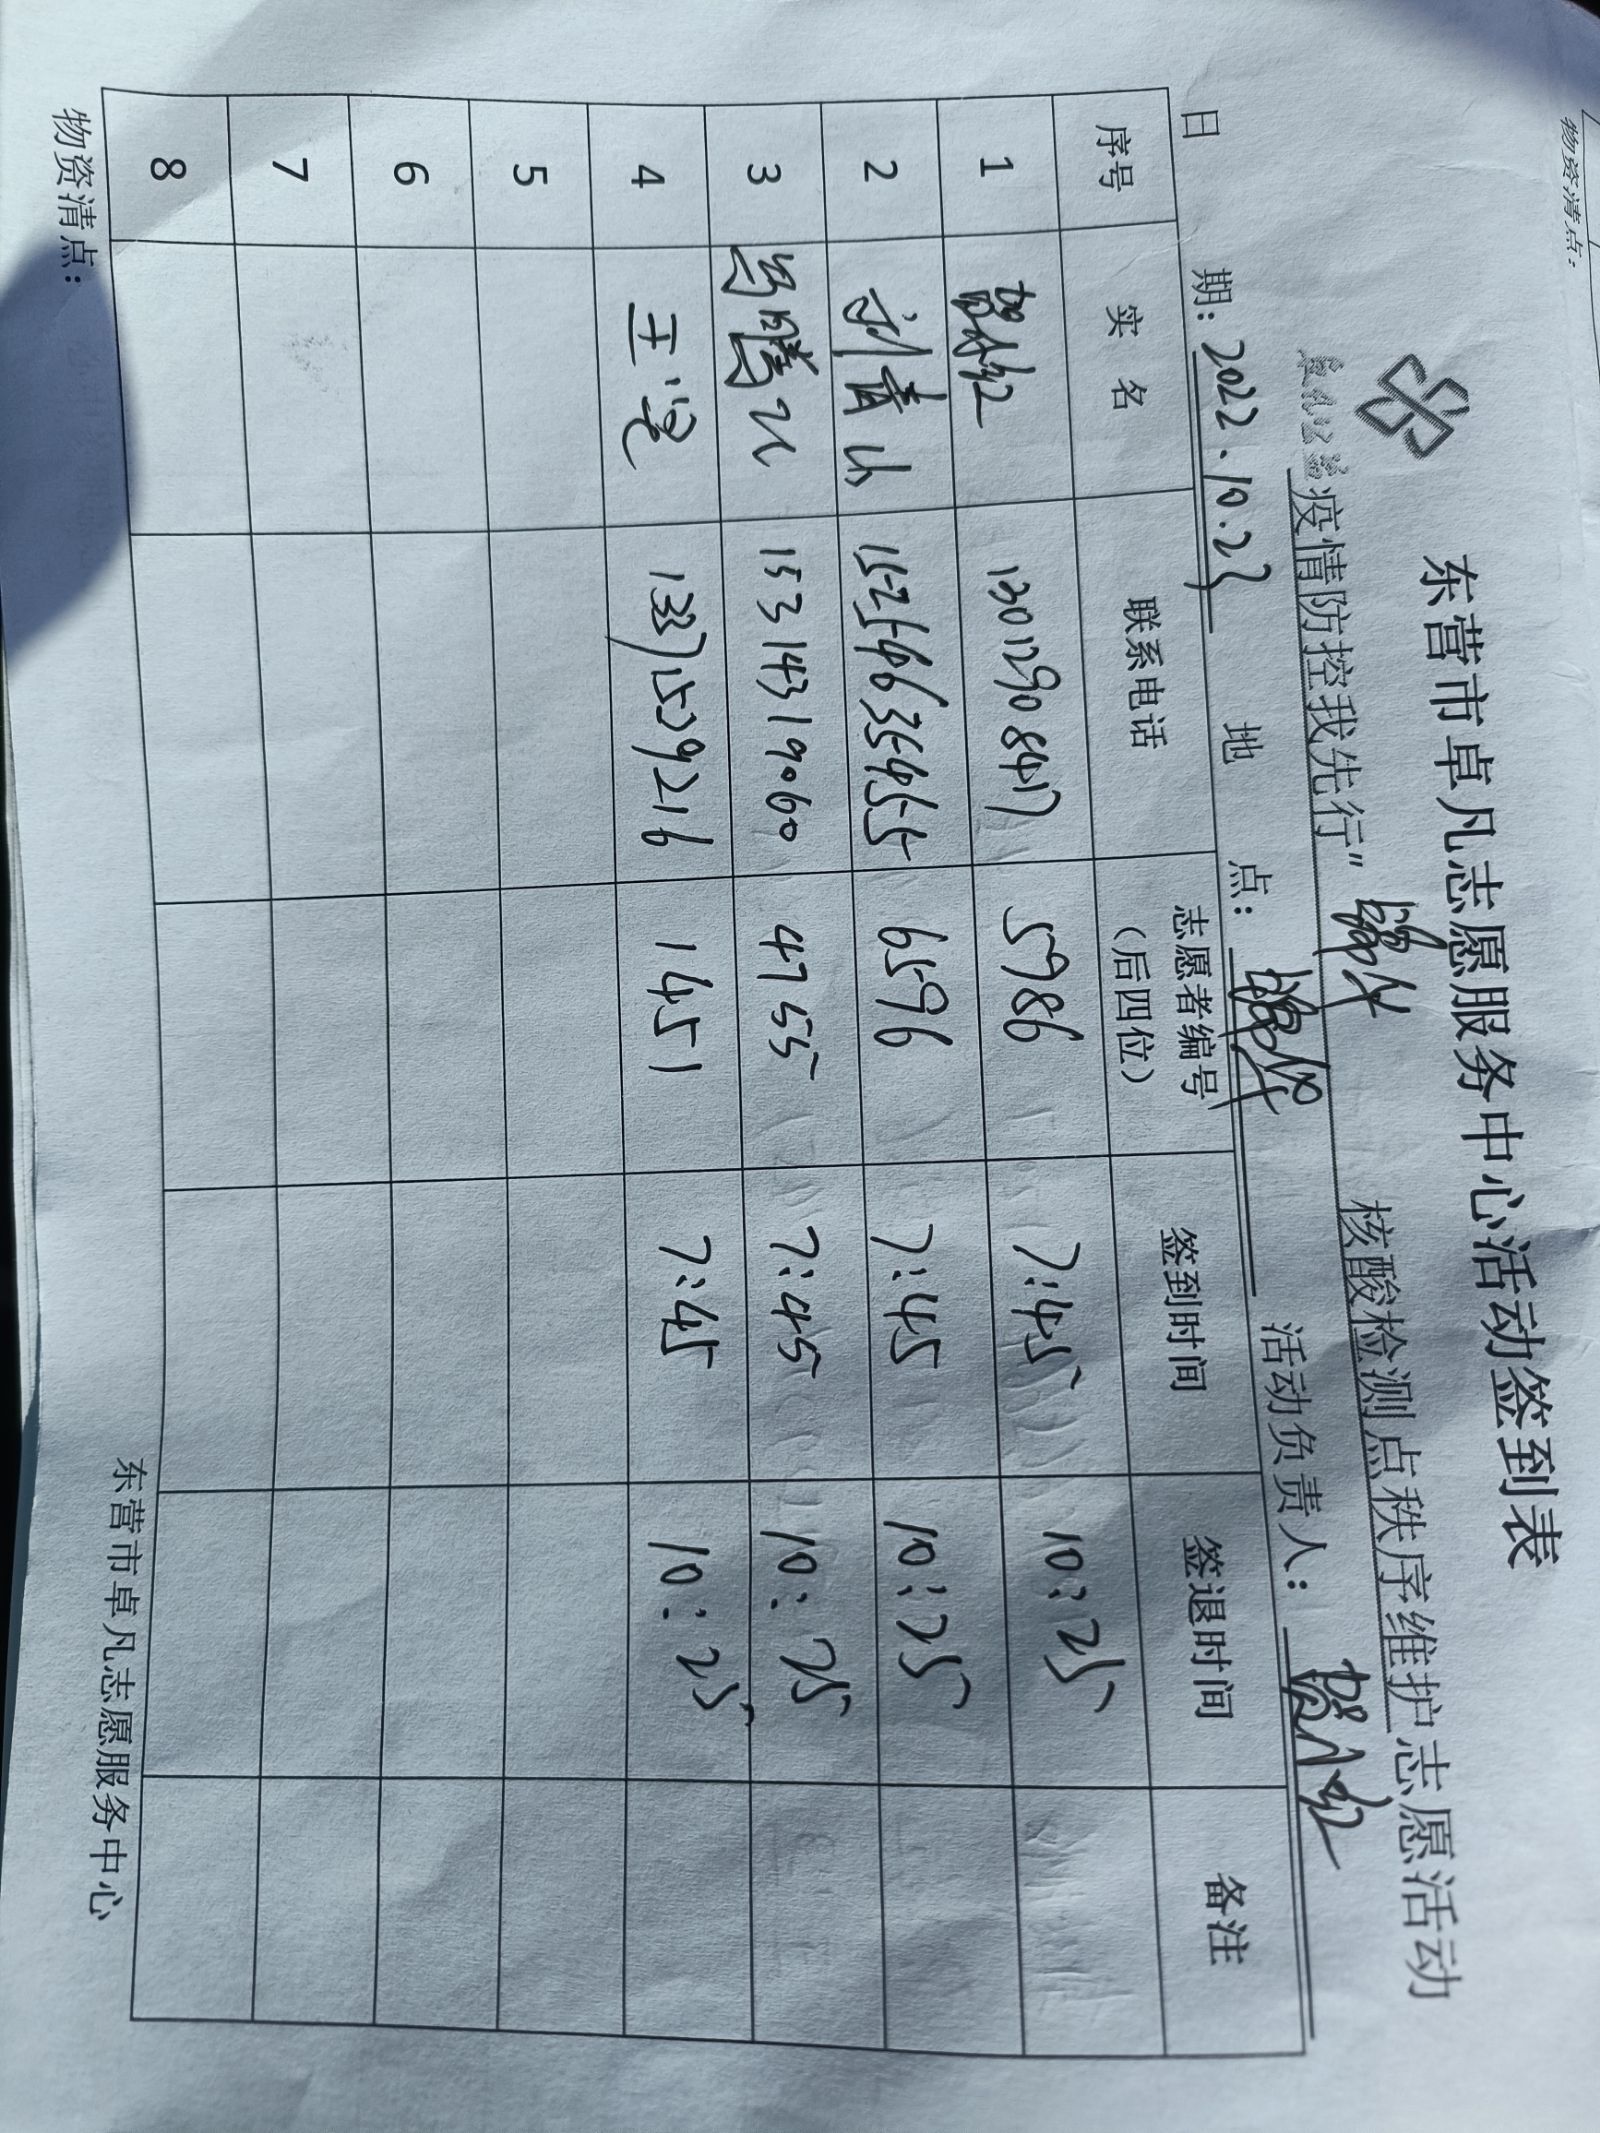 物资清点：
东营市卓凡志愿服务中心活动签到表
疫情防控我先行" 锦华 核酸检测点秩序维护志愿活动
日 期：2022.10.23 地 点：锦华 活动负责人：
序号 实 名 联系电话 志愿者编号（后四位） 签到时间 签退时间 备注
1 13012908417 5986 7:45 10:25
2 刘青山 15254635455 6596 7:45 10:25
3 15314319060 4755 7:45 10:25
4 13371529216 1451 7:45 10:25
5
6
7
8
物资清点： 东营市卓凡志愿服务中心